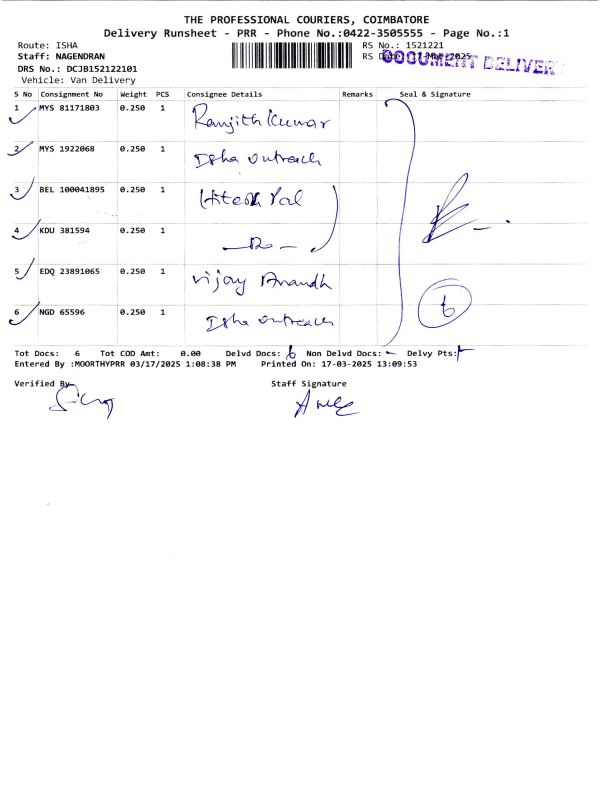 THE PROFESSIONAL COURIERS, COIMBATORE
Delivery Runsheet - PRR - Phone No.:0422-3505555 - Page No.:1
Route: ISHA
RS No.: 1521221
Staff: NAGENDRAN
RS Date: 17-Mar-2025
DOCUMENT DELIVERY
DRS No.: DCJB152122101
Vehicle: Van Delivery
S No Consignment No Weight PCS Consignee Details Remarks Seal & Signature
1 MYS 81171803 0.250 1 Ranjith Kumar
2 MYS 1922068 0.250 1 Isha outreach
3 BEL 100041895 0.250 1 Hitesh
4 KDU 381594 0.250 1 - Do -
5 EDQ 23891065 0.250 1 Vijay Anandh
6 NGD 65596 0.250 1 Isha outreach
6
Tot Docs: 6 Tot COD Amt: 0.00 Delvd Docs: 6 Non Delvd Docs: - Delvy Pts:
Entered By :MOORTHYPRR 03/17/2025 1:08:38 PM Printed On: 17-03-2025 13:09:53
Verified By Staff Signature